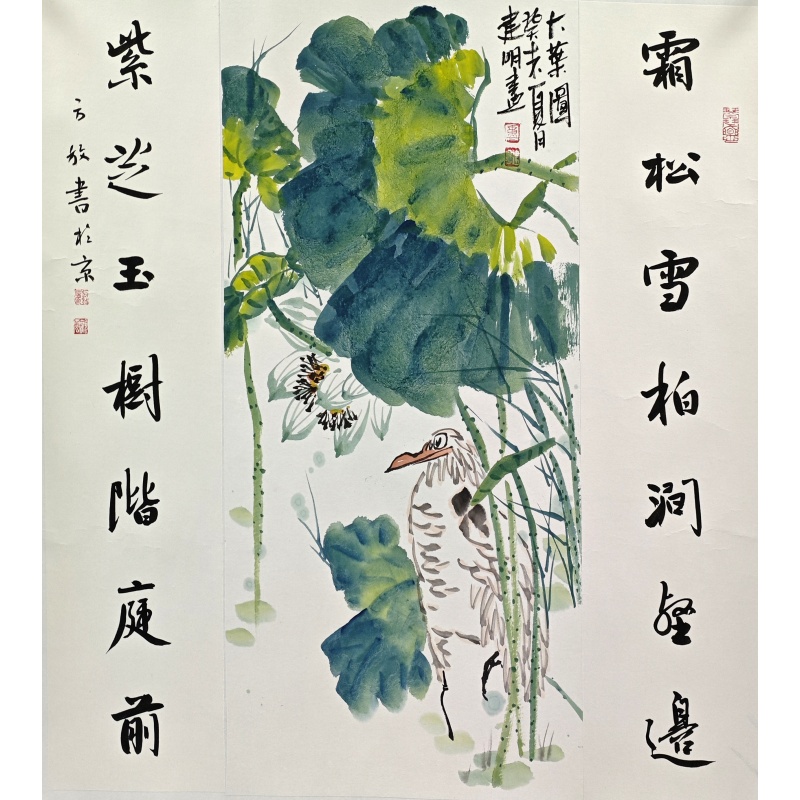 霜松雪柏澗壑邊
大葉圖
癸未夏日
建明畫
紫芝玉樹階庭前
方放書於京